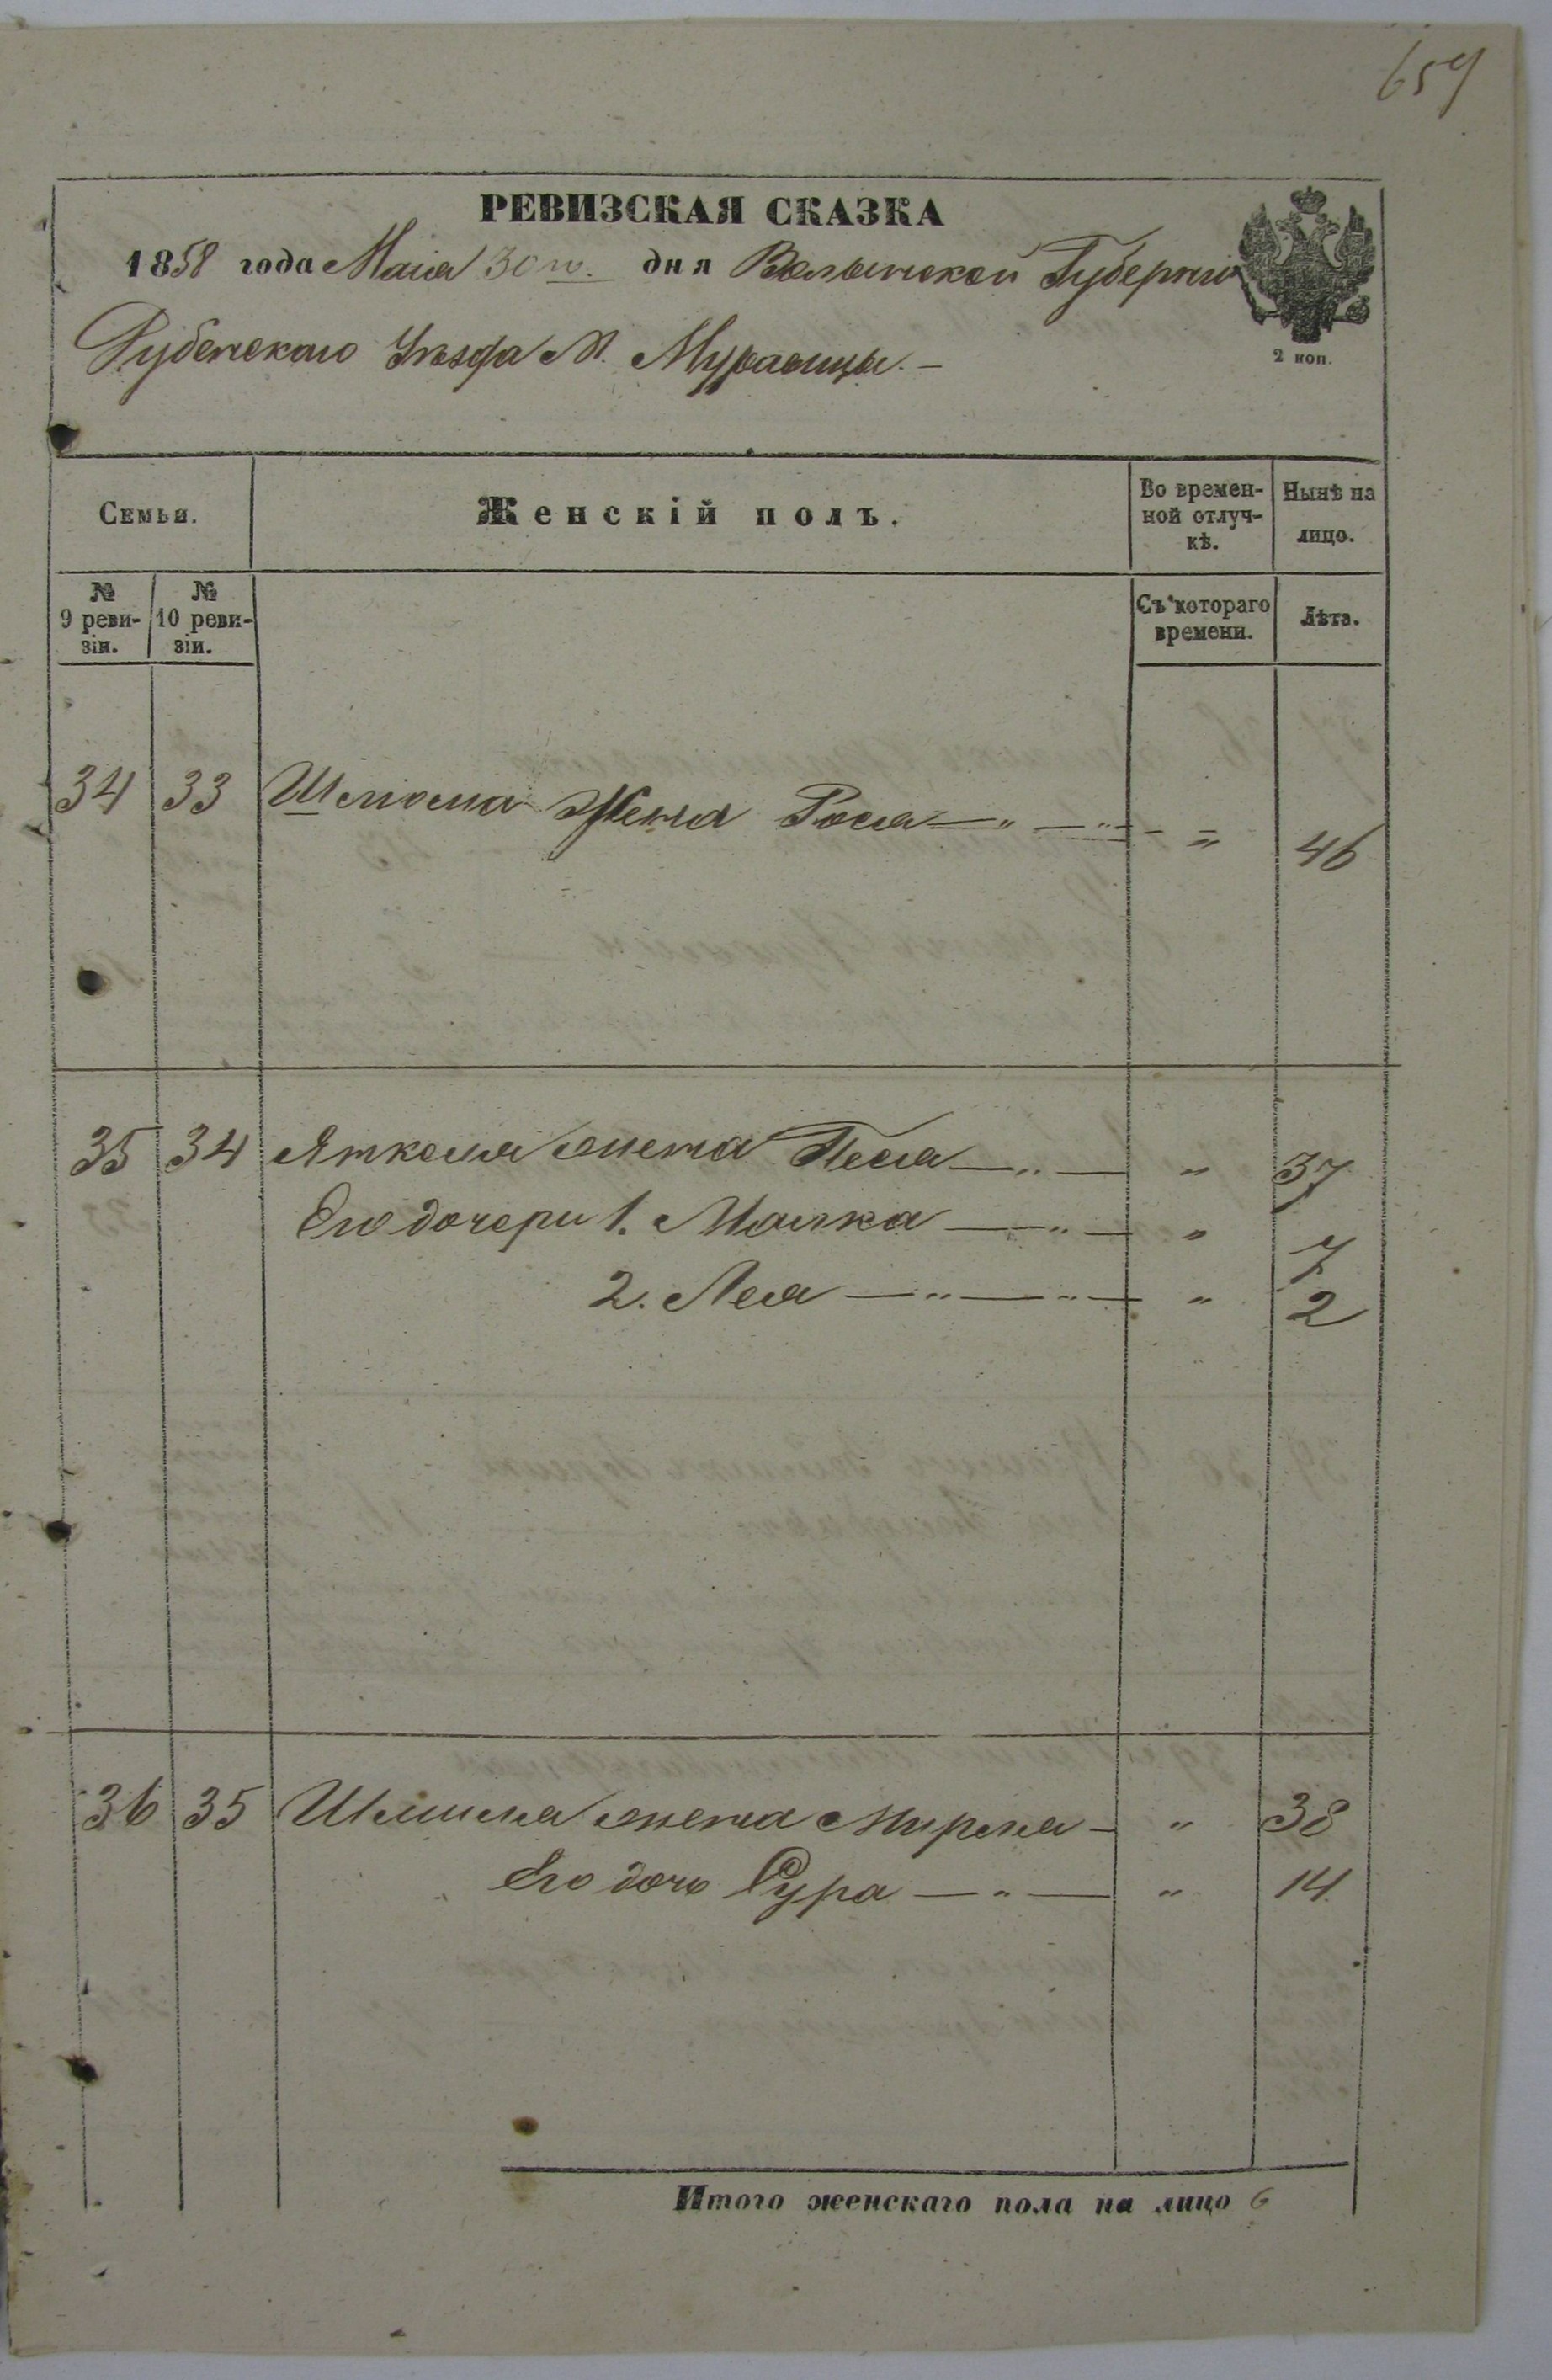 659
РЕВИЗСКАЯ СКАЗКА
1858 года Маія 30го. дня Волынской Губерніи
Дубенскаго Уѣзда М. Муравицы.—
2 коп.
Семьи.
Женскій полъ.
Во времен-
ной отлуч-
кѣ.
Нынѣ на
лицо.
№
9 реви-
зіи.
№
10 реви-
зіи.
Съ котораго
времени.
Лѣта.
34 33 Шліома Жена Рося — " — " — " 46
35 34 жена Песя — " — " 37
Его дочери 1. Малка — " — " 7
2. Лея — " — " — " 2
36 35 жена Мирля — " 38
Его дочь Сура — " — " 14
Итого женскаго пола на лицо 6